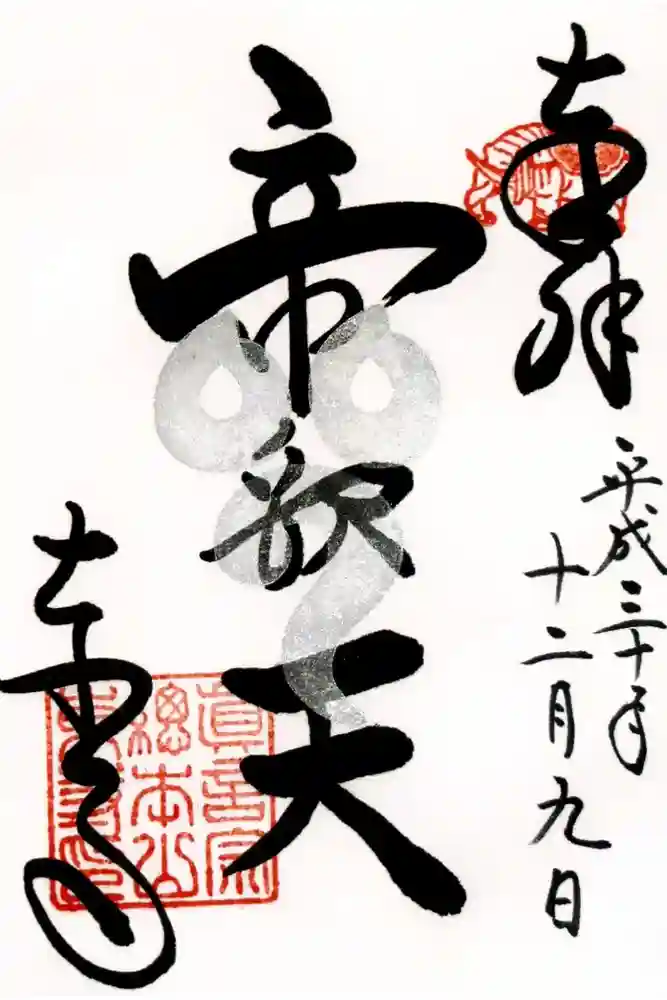 奉拝
平成三十年
十二月九日
帝釈天
東寺
眞言宗
總本山